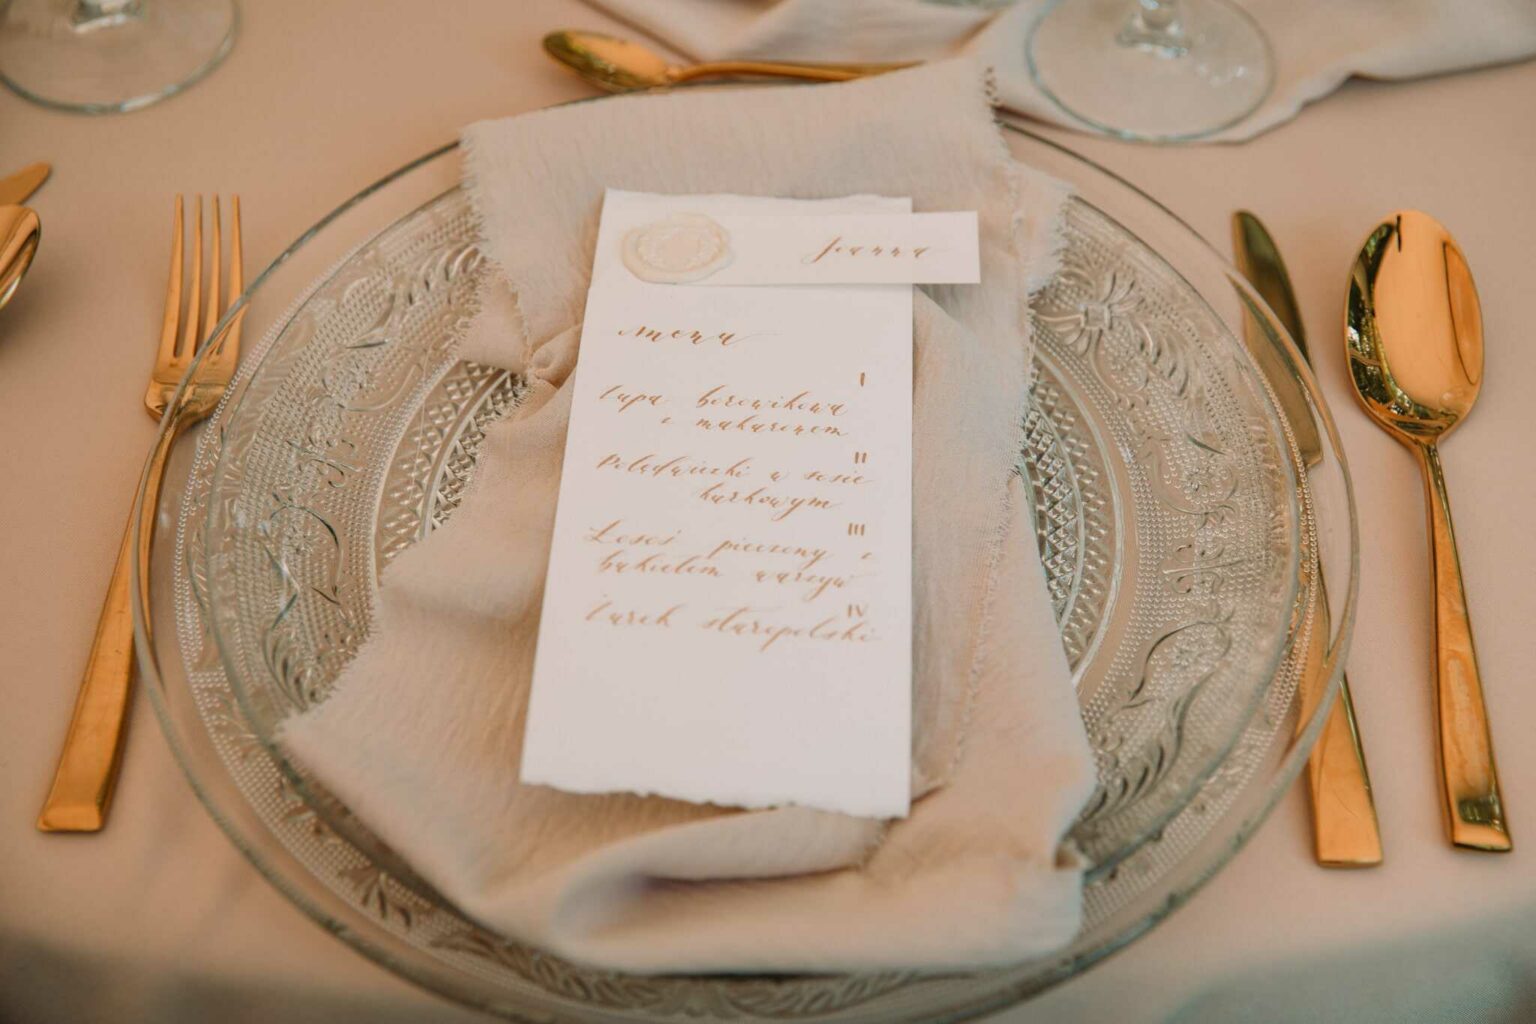 Joanna
menu
I
Zupa borowikowa
z makaronem
II
Polędwiczki w sosie
kurkowym
III
Łosoś pieczony z
bukietem warzyw
IV
Żurek staropolski